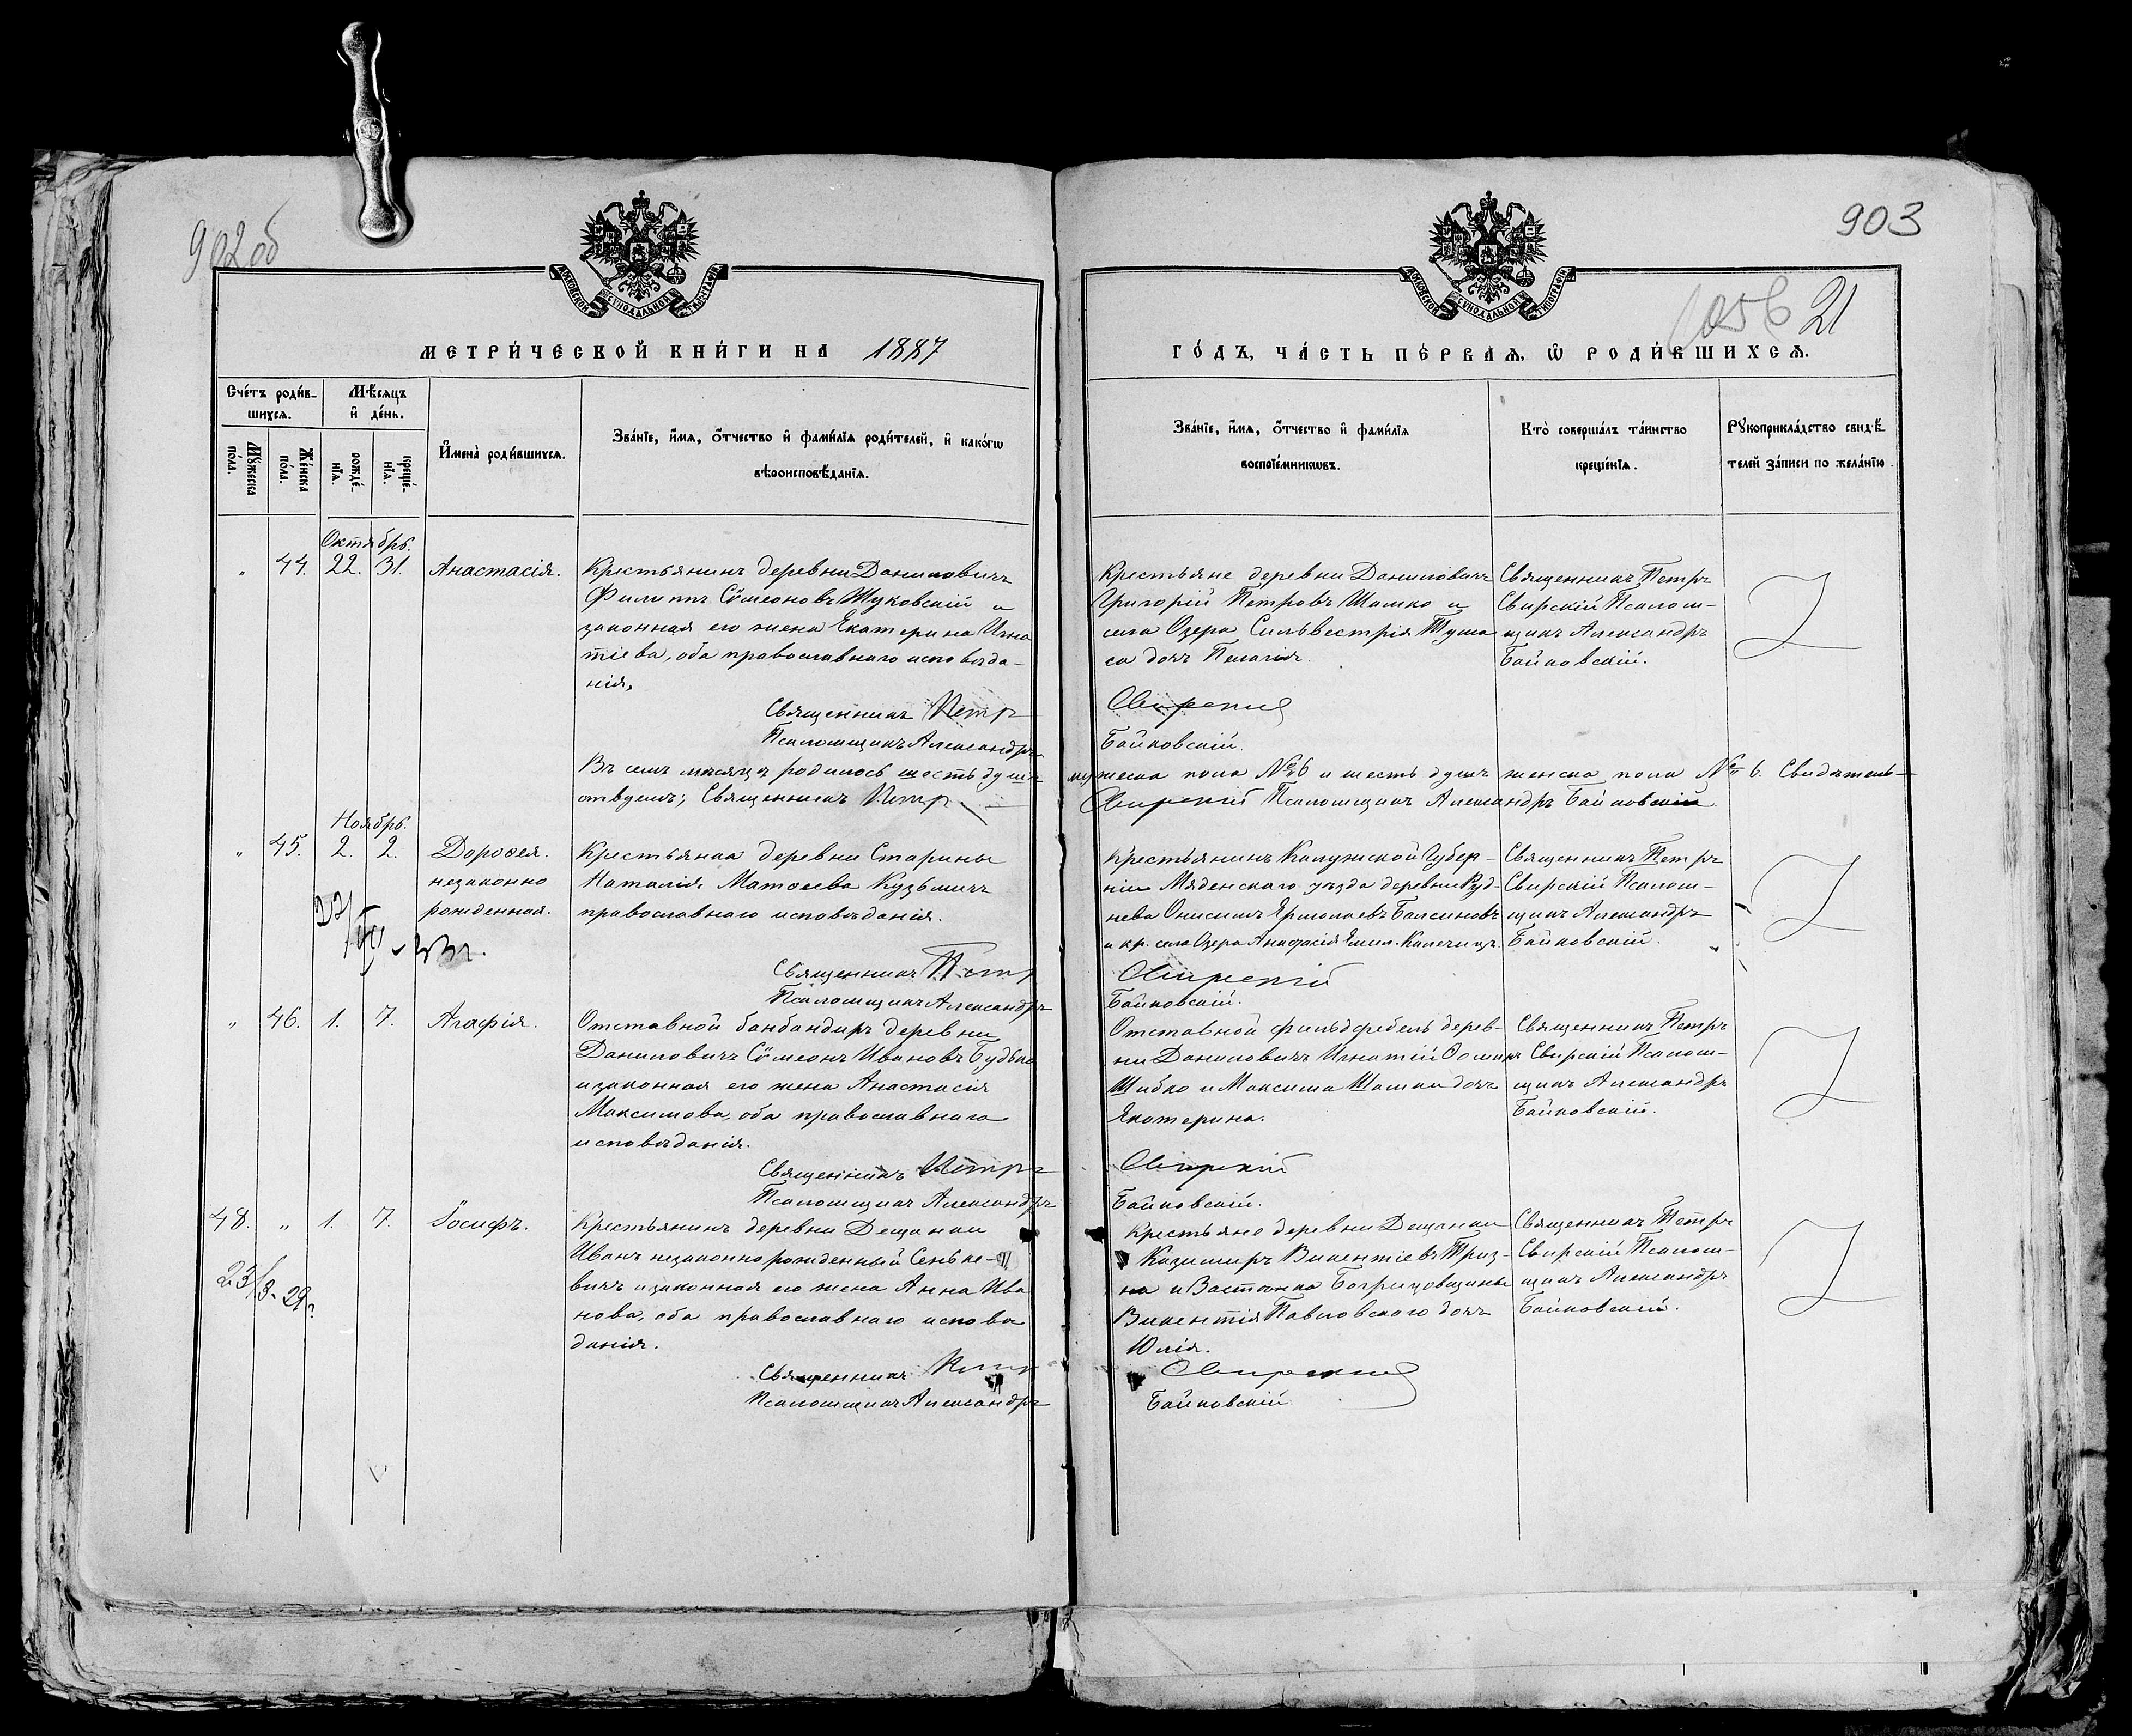 902об
903
1056 21
МОСКОВСКОЙ СѴНОДАЛЬНОЙ ТИПОГРАФІИ
МОСКОВСКОЙ СѴНОДАЛЬНОЙ ТИПОГРАФІИ
МЕТРИ́ЧЕСКОЙ КНИ́ГИ НА 1887
ГО́ДЪ, ЧА́СТЬ ПЕ́РВАѦ, Ѿ РОДИ́ВШИХСѦ.
Сче́тъ роди́в-
шихсѧ.
Мѣ́сяцъ
и҆ де́нь.
Мꙋ́жеска
по́ла.
Же́нска
по́ла.
рожде́-
нїѧ.
креще́-
нїѧ.
И҆мена̀ роди́вшихсѧ.
Зва́нїе, и҆́мѧ, ѻ҆́тчество и҆ фами́лїѧ роди́телей, и҆ како́гѡ
вѣроисповѣ́данїѧ.
Зва́нїе, и҆́мѧ, ѻ҆́тчество и҆ фами́лїѧ
воспрїе́мникѡвъ.
Кто̀ соверша́лъ та́инство
креще́нїѧ.
Рꙋкоприкла́дство свидѣ́-
телей за́писи по жела́нїю.
Октябрь.
" 44. 22. 31. Анастасія.
Крестьянинъ деревни Даниловичъ
Филиппъ Сѵмеоновъ Жуковскій и
законная его жена Екатерина Игна
тіева, оба православнаго исповѣда-
нія.
Священникъ Петръ
Псаломщикъ Александръ
Крестьяне деревни Даниловичъ
Григорій Петровъ Шашко и
села Озера Сильвестрія
дочь Пелагія.
Свирскій
Байковскій.
Священникъ Петръ
Свирскій Псалом-
щикъ Александръ
Байковскій.
Въ семъ мѣсяцѣ родилось шесть душъ мужеска пола № 6 и шесть душъ женска пола № 6. Свидѣтель-
ствуемъ; Священникъ Петръ Свирскій Псаломщикъ Александръ Байковскій
Ноябрь.
" 45. 2. 2. Дороѳея.
незаконно
рожденная.
Крестьянка деревни Старины
Наталія Матѳеева Кузьмичъ
православнаго исповѣданія.
Священникъ Петръ
Псаломщикъ Александръ
Крестьянинъ Калужской Губер-
ніи Мяденскаго уѣзда деревни Руд-
нева Онисимъ Ермолаевъ
и кр. села Озера
Свирскій
Байковскій.
Священникъ Петръ
Свирскій Псалом-
щикъ Александръ
Байковскій.
" 46. 1. 7. Агафія.
Отставной банбандиръ деревни
Даниловичъ Сѵмеонъ Ивановъ Будько
и законная его жена Анастасія
Максимова, оба православнаго
исповѣданія.
Священникъ Петръ
Псаломщикъ Александръ
Отставной фельдфебель дерев-
ни Даниловичъ Игнатій Ѳоминъ
Шибко и Максима Шашки дочь
Екатерина.
Свирскій
Байковскій.
Священникъ Петръ
Свирскій Псалом-
щикъ Александръ
Байковскій.
48. " 1. 7. Іосифъ.
23/8. 29 г.
Крестьянинъ деревни Дещанки
Иванъ незаконнорожденный Сеньке-
вичъ и законная его жена Анна Ива
нова, оба православнаго исповѣ
данія.
Священникъ Петръ
Псаломщикъ Александръ
Крестьяне деревни Дещанки
Казимиръ Викентіевъ Триз-
на и
Викентія Павловскаго дочь
Юлія.
Свирскій
Байковскій.
Священникъ Петръ
Свирскій Псалом-
щикъ Александръ
Байковскій.